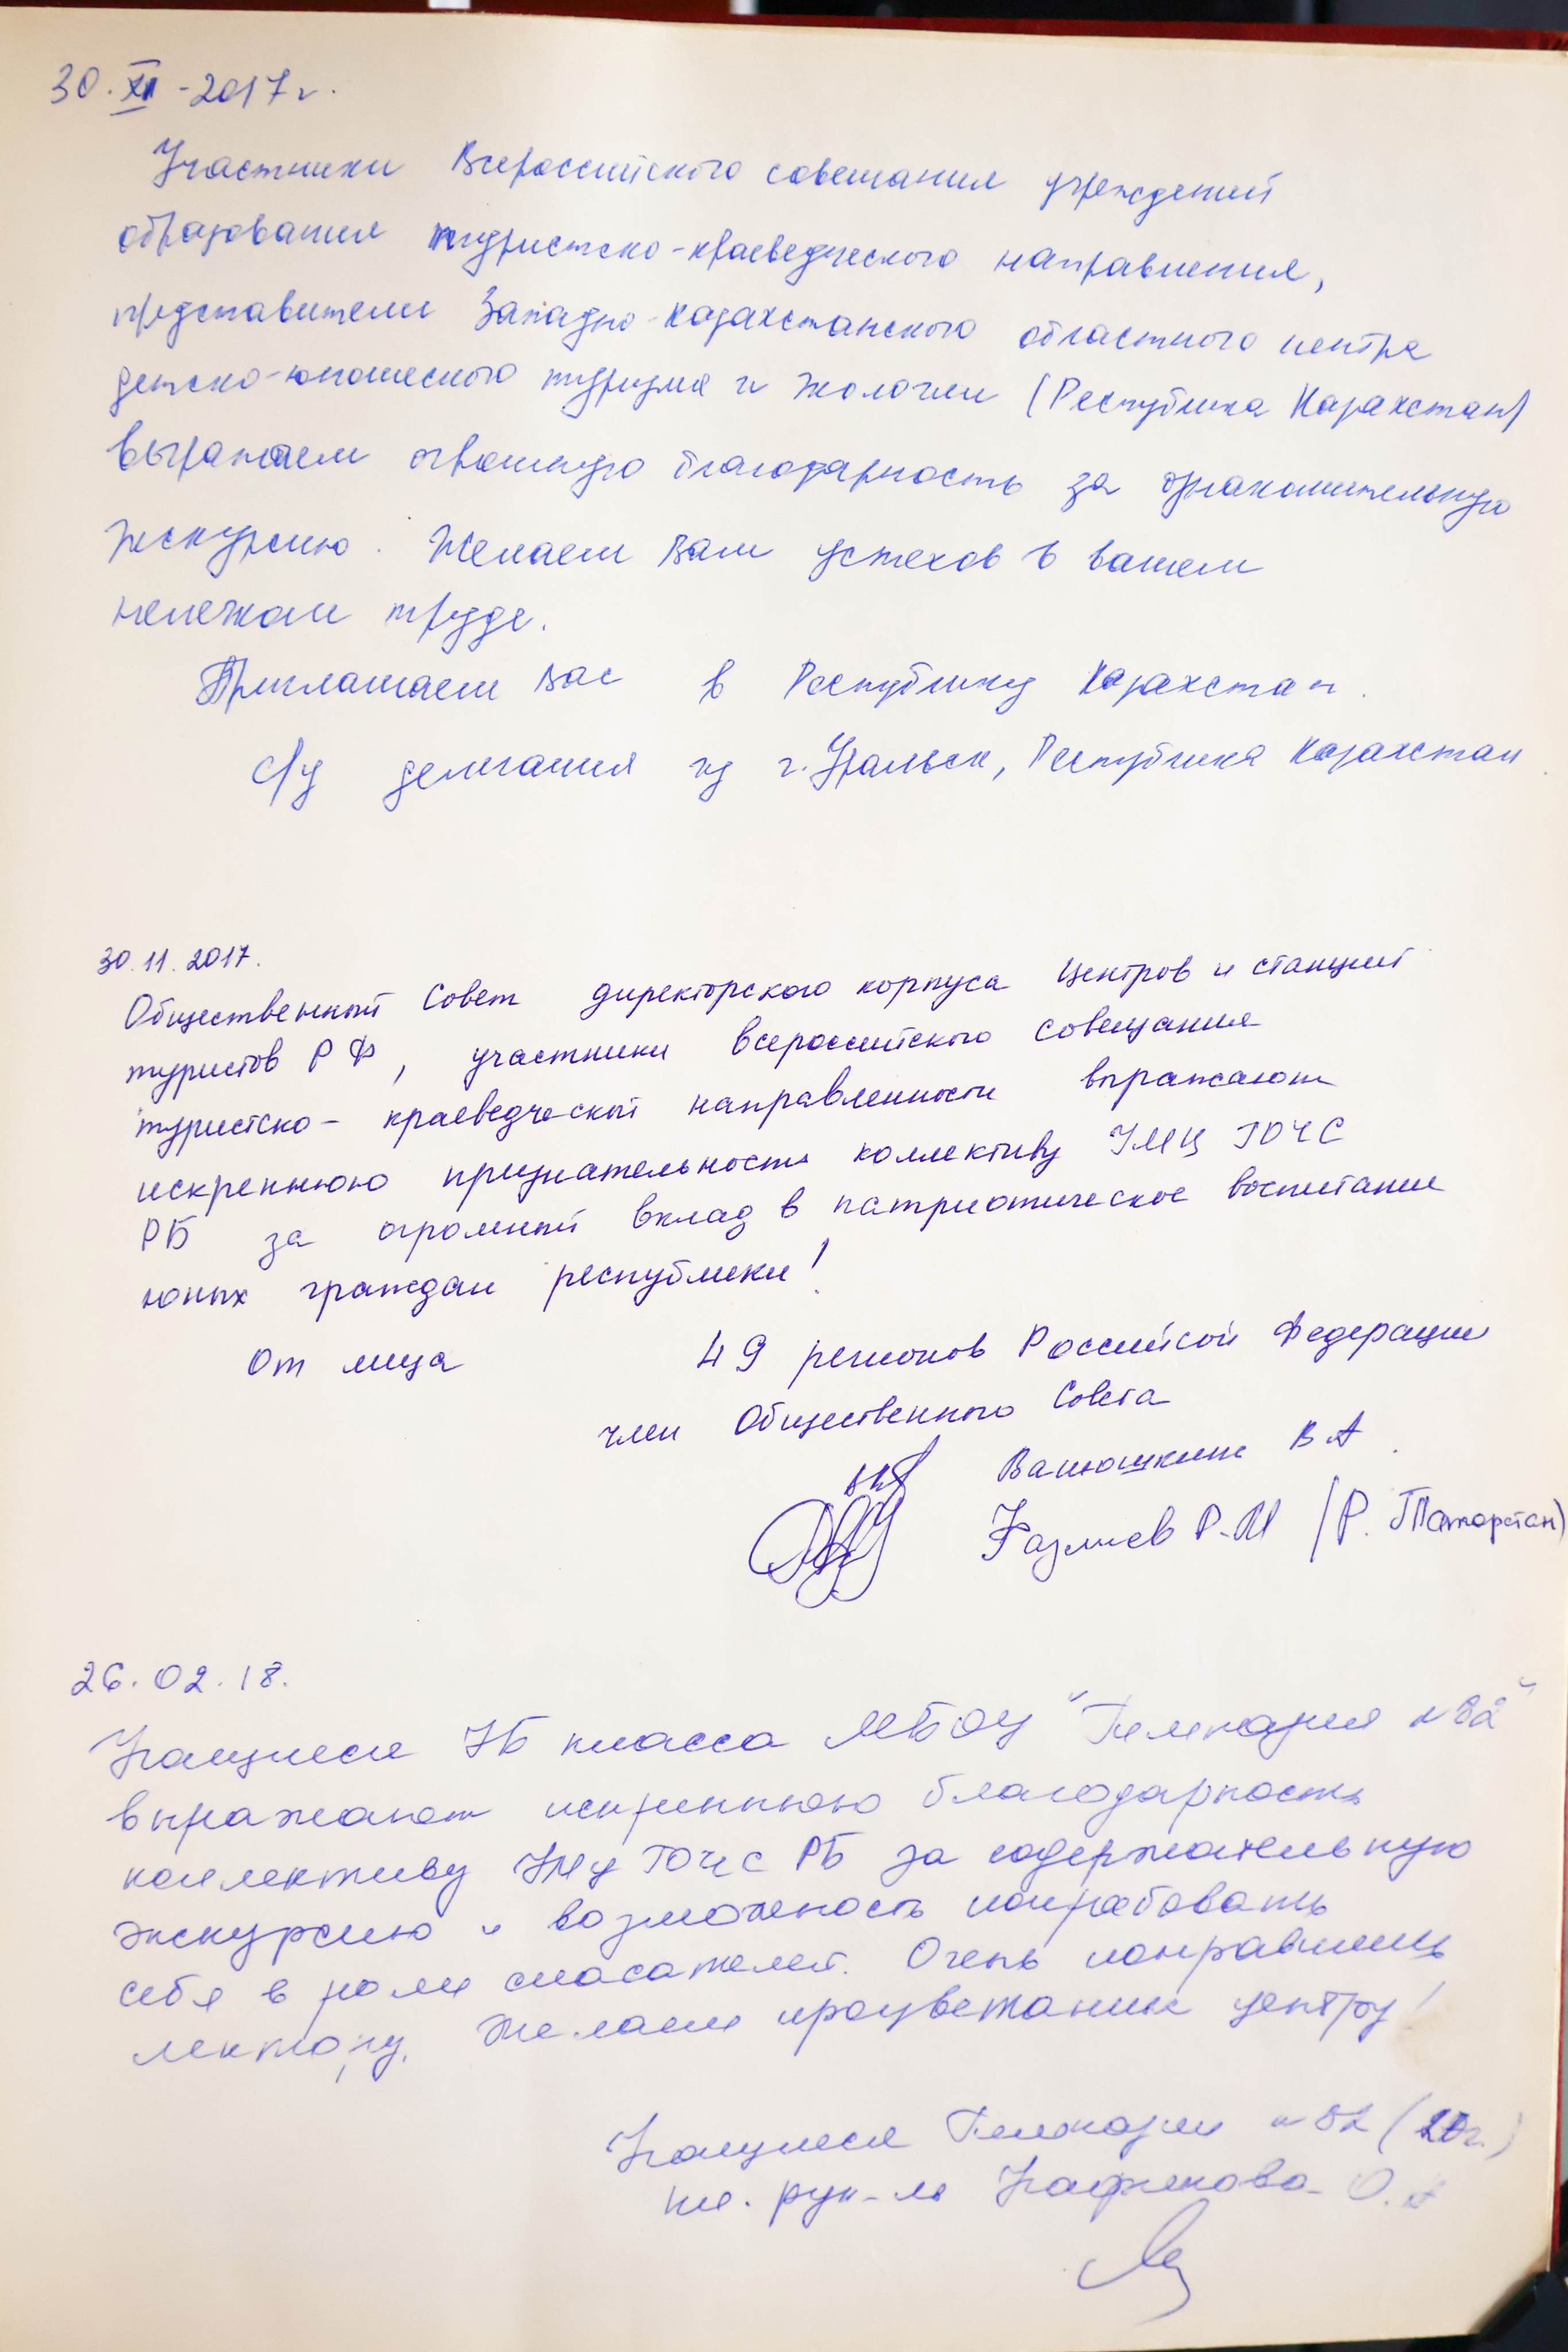 30.XI-2017г.
Участники Всероссийского совещания учреждений
образования туристско-краеведческого направления,
представители Западно-Казахстанского областного центра
детско-юношеского туризма и экологии (Республика Казахстан)
выражаем огромную благодарность за ознакомительную
экскурсию. Желаем Вам успехов в вашем
нелегком труде.
Приглашаем Вас в Республику Казахстан.
с/у делегация из г. Уральск, Республика Казахстан
30.11.2017.
Общественный Совет директорского корпуса Центров и станций
туристов РФ, участники всероссийского совещания
туристско-краеведческой направленности выражают
искреннюю признательность коллективу УМЦ ГОЧС
РБ за огромный вклад в патриотическое воспитание
юных граждан республики!
От лица 49 регионов Российской Федерации
член Общественного Совета
Ванюшкин В А.
Фазлиев Р.М (Р. Татарстан)
26.02.18.
Учащиеся 7Б класса МБОУ "Гимназия №82"
выражают искреннюю благодарность
коллективу УМЦ ГОЧС РБ за содержательную
экскурсию и возможность попробовать
себя в роли спасателей. Очень понравились
лектору. Желаем процветания центру!
Учащиеся Гимназии №82 (20ч.)
кл. рук-ль О.А